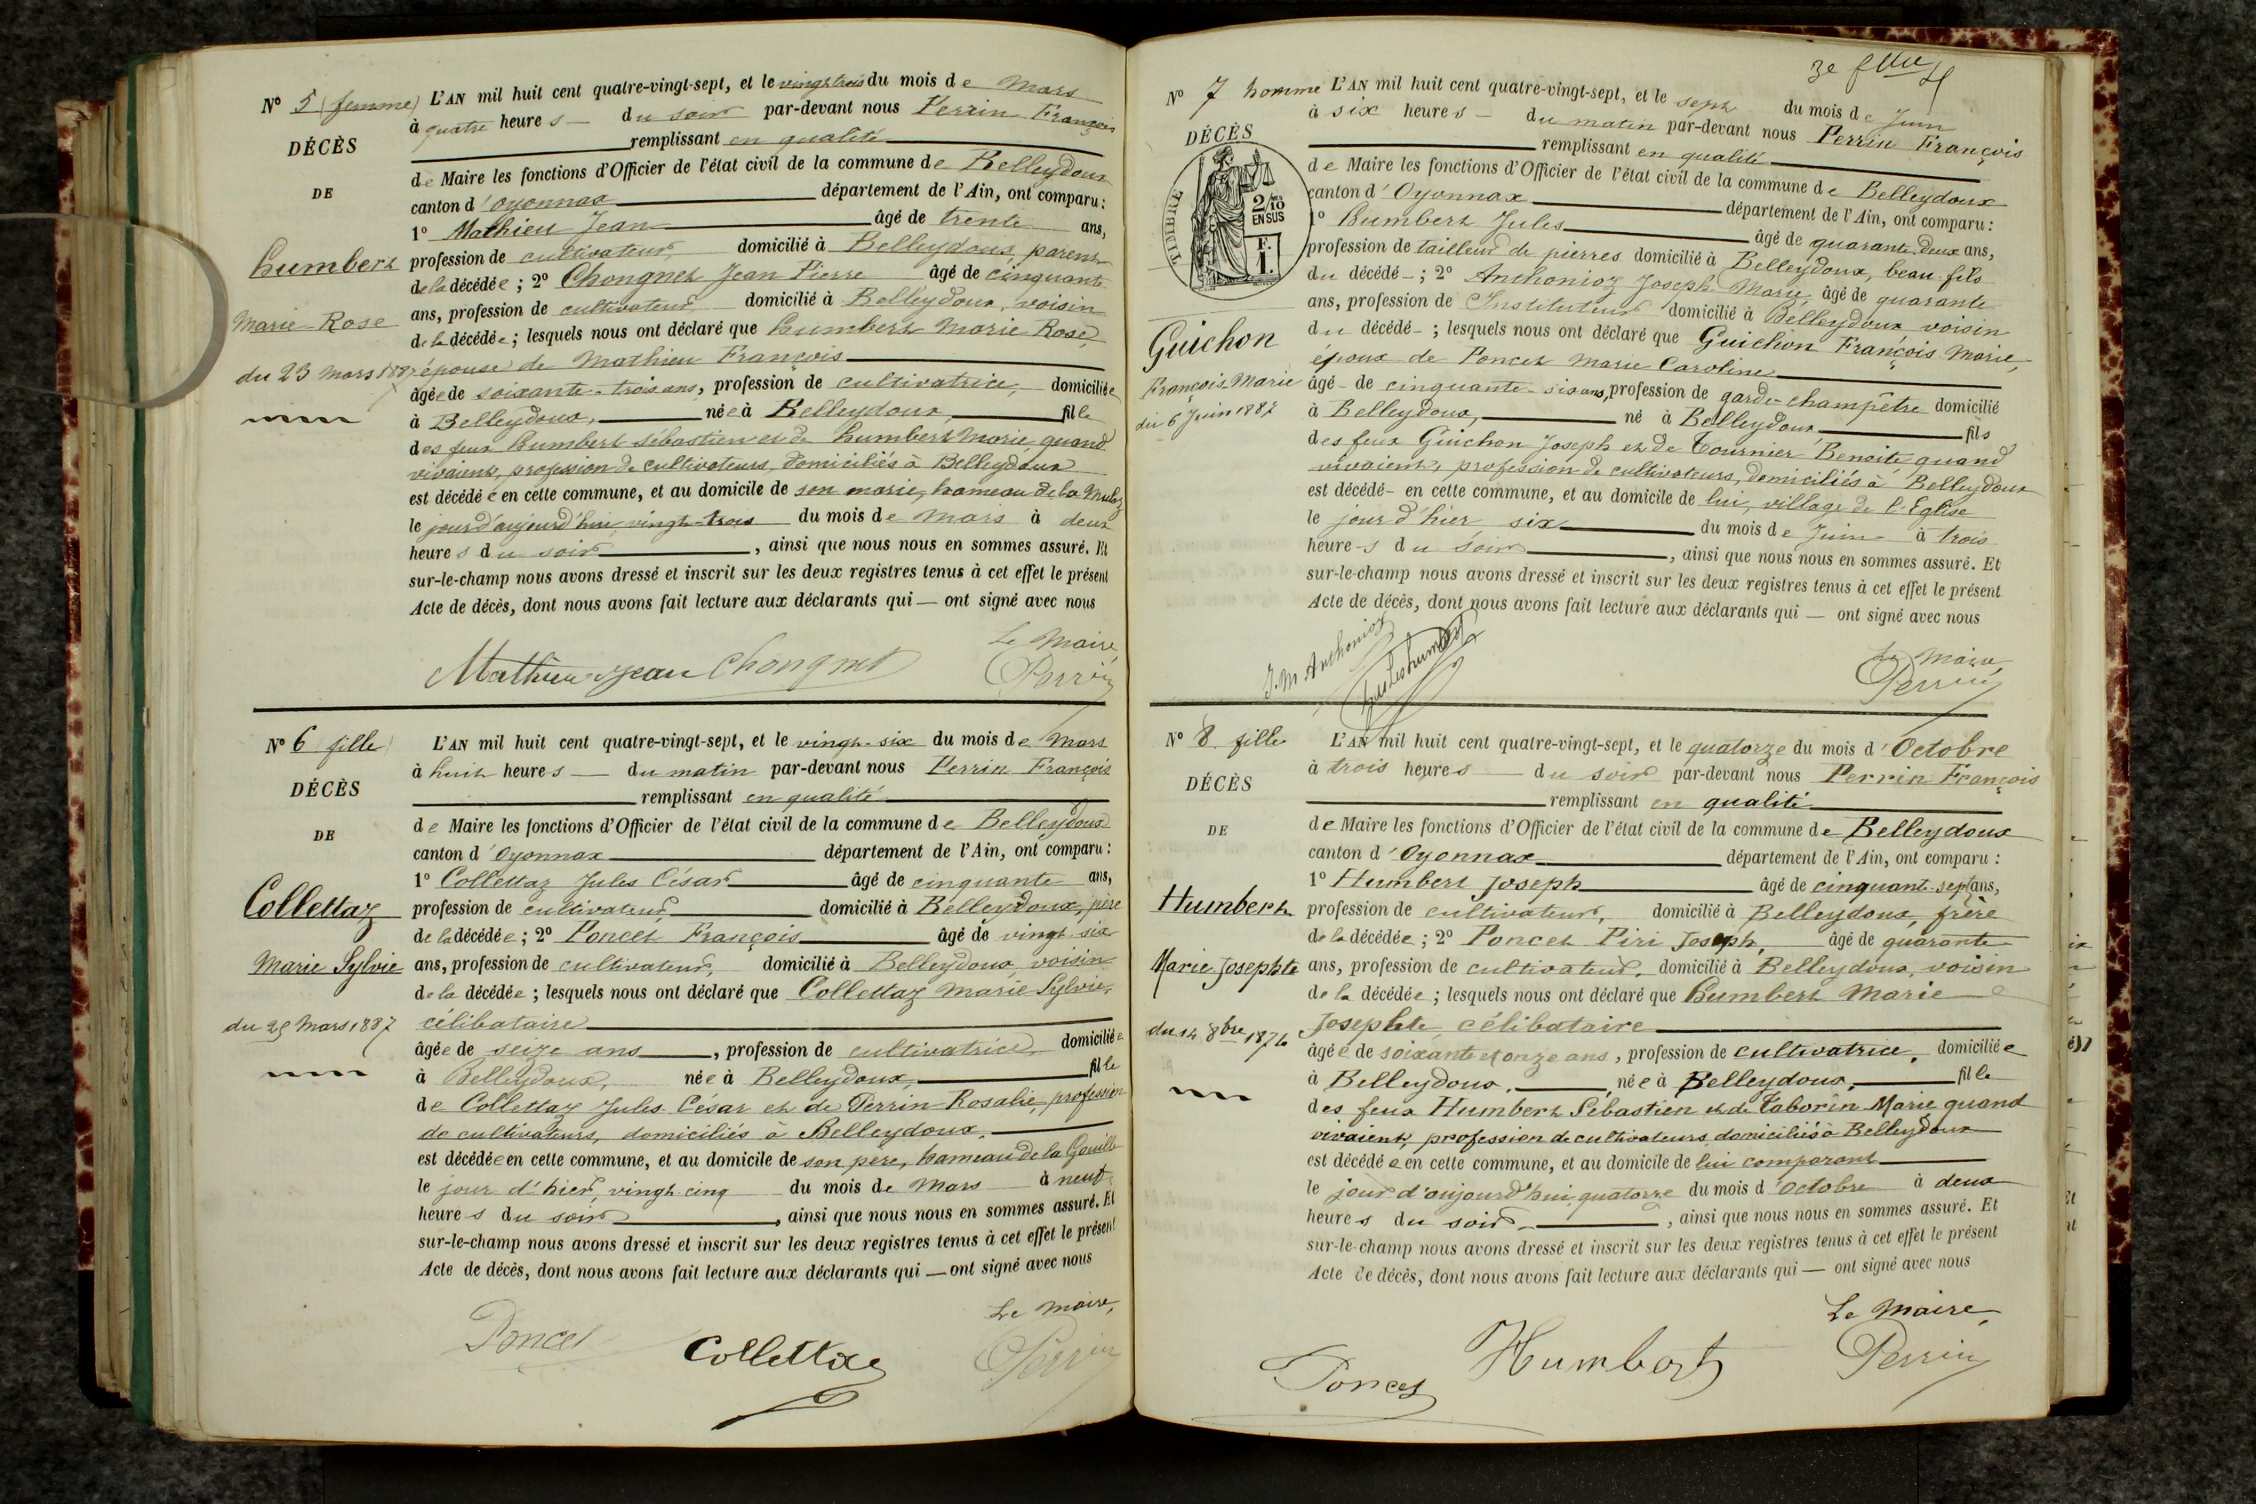 N° 5 (femme)
DÉCÈS
DE
humbert
Marie Rose
du 23 mars 1887
L'AN mil huit cent quatre-vingt-sept, et le vingt trois du mois de Mars
à quatre heures — du soir par-devant nous Perrin François
remplissant en qualité
de Maire les fonctions d'Officier de l'état civil de la commune de Belleydoux
canton d'oyonnax département de l'Ain, ont comparu :
1° Mathieu Jean âgé de trente ans,
profession de cultivateur, domicilié à Belleydoux, parent
de la décédée ; 2° Chongnet Jean Pierre âgé de cinquante
ans, profession de cultivateur, domicilié à Belleydoux, voisin
de la décédée ; lesquels nous ont déclaré que humbert Marie Rose,
épouse de Mathieu François
âgée de soixante-trois ans, profession de cultivatrice, domiciliée
à Belleydoux, née à Belleydoux, fille
des feux humbert sébastien et de humbert Marie quand
vivaient, profession de cultivateurs, domiciliés à Belleydoux
est décédée en cette commune, et au domicile de son marie, hameau de la
le jour d'aujourd'hui vingt-trois du mois de Mars à deux
heures du soir, ainsi que nous nous en sommes assuré. Et
sur-le-champ nous avons dressé et inscrit sur les deux registres tenus à cet effet le présent
Acte de décès, dont nous avons fait lecture aux déclarants qui — ont signé avec nous
Le Maire,
Mathieu jean Chongnet Perrin
N° 6 fille
DÉCÈS
DE
Collettaz
Marie Sylvie
du 25 Mars 1887
L'AN mil huit cent quatre-vingt-sept, et le vingt-six du mois de Mars
à huit heures — du matin par-devant nous Perrin François
remplissant en qualité
de Maire les fonctions d'Officier de l'état civil de la commune de Belleydoux
canton d'Oyonnax département de l'Ain, ont comparu :
1° Collettaz Jules César âgé de cinquante ans,
profession de cultivateur, domicilié à Belleydoux, père
de la décédée ; 2° Poncet François âgé de vingt six
ans, profession de cultivateur, domicilié à Belleydoux, voisin
de la décédée ; lesquels nous ont déclaré que Collettaz Marie Sylvie,
célibataire
âgée de seize ans, profession de cultivatrice, domiciliée
à Belleydoux, née à Belleydoux, fille
de Collettaz Jules César et de Perrin Rosalie, profession
de cultivateurs, domiciliés à Belleydoux.
est décédée en cette commune, et au domicile de son père, hameau de la Gouille
le jour d'hier, vingt cinq du mois de Mars à neuf
heures du soir, ainsi que nous nous en sommes assuré. Et
sur-le-champ nous avons dressé et inscrit sur les deux registres tenus à cet effet le présent
Acte de décès, dont nous avons fait lecture aux déclarants qui — ont signé avec nous
Le Maire,
Poncet Collettaz Perrin
3e
N° 7 homme
DÉCÈS
TIMBRE
2/10
EN SUS
F.
1.
Guichon
François Marie
du 6 Juin 1887
L'AN mil huit cent quatre-vingt-sept, et le sept du mois de Juin
à six heures — du matin par-devant nous Perrin François
remplissant en qualité
de Maire les fonctions d'Officier de l'état civil de la commune de Belleydoux
canton d'Oyonnax département de l'Ain, ont comparu :
1° humbert Jules âgé de quarante deux ans,
profession de tailleur de pierres domicilié à Belleydoux, beau-fils
du décédé- ; 2° Anthonioz Joseph Marie, âgé de quarante
ans, profession de Instituteur domicilié à Belleydoux voisin
du décédé- ; lesquels nous ont déclaré que Guichon François Marie,
époux de Poncet Marie Caroline
âgé- de cinquante-six ans, profession de garde-champêtre domicilié
à Belleydoux, né à Belleydoux fils
des feux Guichon Joseph et de Tournier Benoite quand
vivaient, profession de cultivateurs, domiciliés à Belleydoux
est décédé- en cette commune, et au domicile de lui, village de l'Eglise
le jour d'hier six du mois de Juin à trois
heures du soir, ainsi que nous nous en sommes assuré. Et
sur-le-champ nous avons dressé et inscrit sur les deux registres tenus à cet effet le présent
Acte de décès, dont nous avons fait lecture aux déclarants qui — ont signé avec nous
Le Maire,
J. M Anthonioz Perrin
N° 8 fille
DÉCÈS
DE
Humbert
Marie Josephte
du 14 8bre
L'AN mil huit cent quatre-vingt-sept, et le quatorze du mois d'Octobre
à trois heures — du soir par-devant nous Perrin François
remplissant en qualité
de Maire les fonctions d'Officier de l'état civil de la commune de Belleydoux
canton d'Oyonnax département de l'Ain, ont comparu :
1° Humbert Joseph âgé de cinquant-sept ans,
profession de cultivateur, domicilié à Belleydoux, frère
de la décédée ; 2° Poncet Piri Joseph, âgé de quarante
ans, profession de cultivateur, domicilié à Belleydoux, voisin
de la décédée ; lesquels nous ont déclaré que humbert Marie
Josephte, célibataire
âgée de soixante et onze ans, profession de cultivatrice, domiciliée
à Belleydoux, née à Belleydoux, fille
des feux Humbert Sébastien et de Taborin Marie quand
vivaient, profession de cultivateurs domiciliés à Belleydoux
est décédée en cette commune, et au domicile de lui comparant
le jour d'aujourd'hui quatorze du mois d'octobre à deux
heures du soir, ainsi que nous nous en sommes assuré. Et
sur-le-champ nous avons dressé et inscrit sur les deux registres tenus à cet effet le présent
Acte de décès, dont nous avons fait lecture aux déclarants qui — ont signé avec nous
Le Maire,
Poncet Humbert Perrin